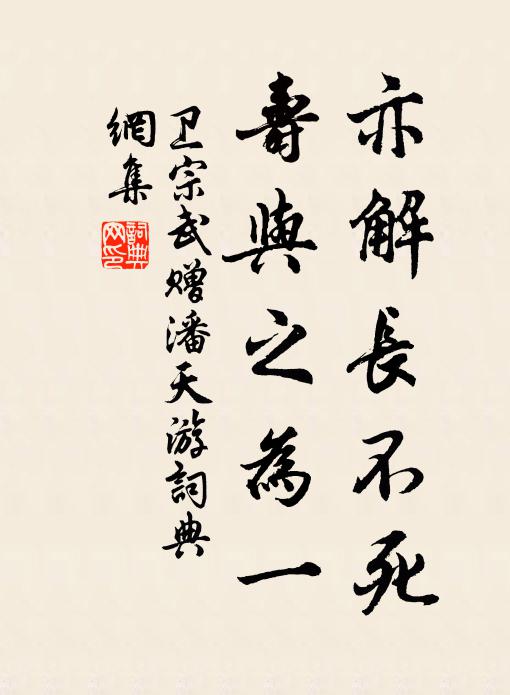 亦解長不死
壽與之為一
卫宗武赠潘天游詞典
網集
詞典网印